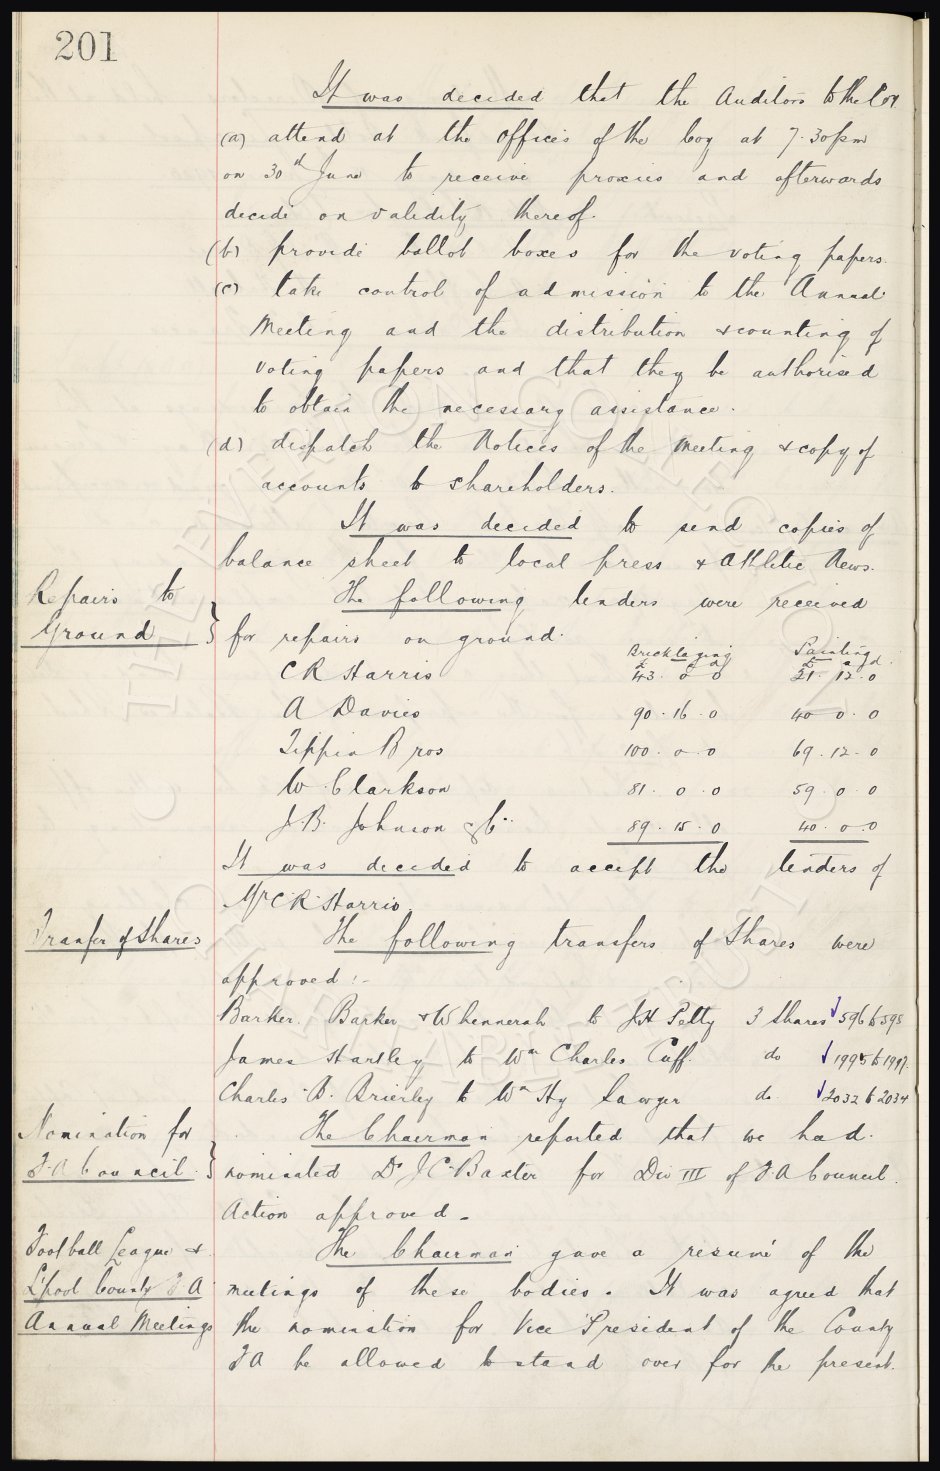 201
It was decided that the Auditors to the Coy
(a) attend at the Offices of the Coy at 7.30pm
on 30th June to receive proxies and afterwards
decide on validity thereof.
(b) provide ballot boxes for the voting papers.
(c) take control of admission to the Annual
Meeting and the distribution & counting of
voting papers and that they be authorised
to obtain the necessary assistance.
(d) dispatch the Notices of the Meeting & copy of
accounts to shareholders.
It was decided to send copies of
balance sheet to local press & Athletic News.
Repairs to
Ground
The following tenders were received
for repairs on ground.
Bricklaying Painting
£ s d £ s d
C R Harris 43. 0 0 21. 12. 0
A Davies 90. 16. 0 40 0. 0
Tippin Bros 100. 0. 0 69. 12. 0
W. Clarkson 81. 0. 0 59. 0. 0
J.B. Johnson & Co. 89. 15. 0 40. 0. 0
It was decided to accept the tenders of
Mr C R Harris.
Tranfer of Shares
The following transfers of Shares were
approved:-
Barker. Barker & Whennerah to J H Petty 3 Shares 596 to 598
James Hartley to Wm Charles Cuff. do 1995 to 1997.
Charles B. Brierley to Wm Hy Sawyer do 2032 to 2034
Nomination for
F.A Council.
The Chairman reported that we had.
nominated Dr J C. Baxter for Div III of F.A Council.
Action approved.
Football League &
L'pool County F.A
Annual Meetings
The Chairman gave a resumé of the
meetings of these bodies. It was agreed that
the nomination for Vice President of the County
F A be allowed to stand over for the present.